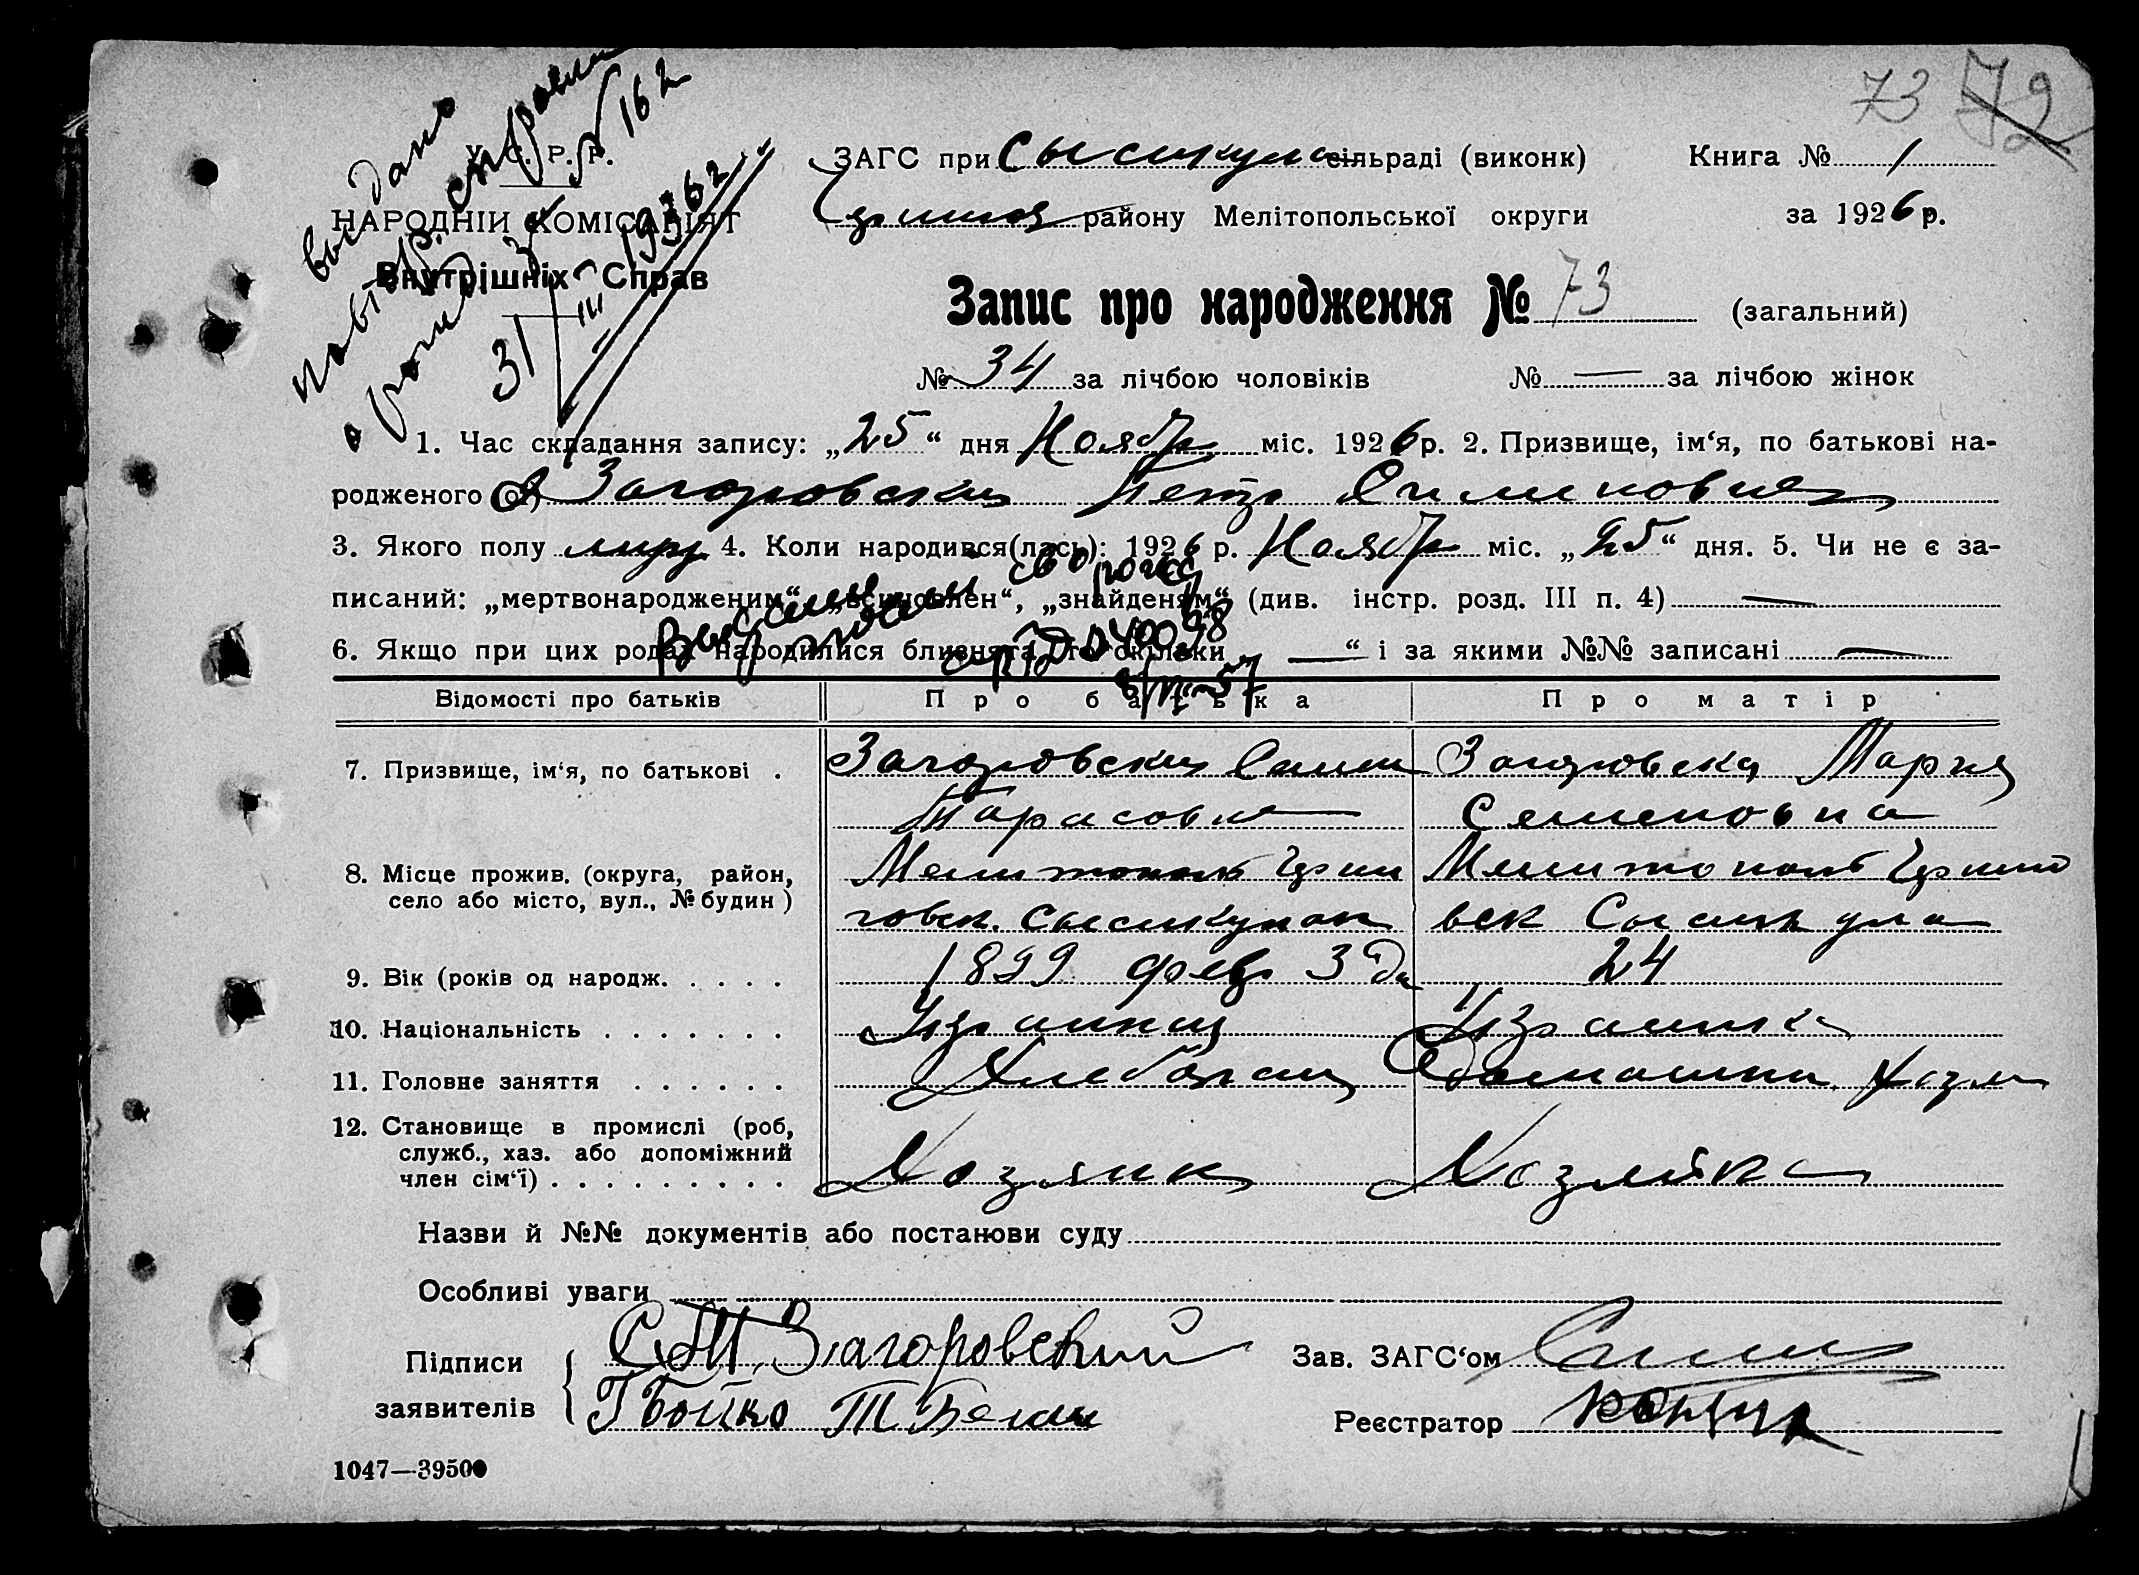 73 72
выдано
повтор. справка
о рожд. № 162
31/III 1936 г
У. С. Р. Р.
НАРОДНІЙ КОМІСАРІЯТ
Внутрішніх Справ
ЗАГС при сільраді (виконк) Книга № 1
району Мелітопольської округи за 1926 р.
Запис про народження № 73 (загальний)
№ 34 за лічбою чоловіків № — за лічбою жінок
1. Час складання запису: „25“ дня Ноября міс. 1926 р. 2. Призвище, ім‘я, по батькові на-
родженого (ої) Загоровский Петр
3. Якого полу муж 4. Коли народився(лась): 1926 р. Ноябр міс. „25“ дня. 5. Чи не є за-
писаний: „мертвонародженим“, „всиновлен“, „знайденям“ (див. інстр. розд. III п. 4) —
6. Якщо при цих родах народилися близнята, то скільки — “ і за якими №№ записані —
Відомості про батьків Про батька Про матір
7. Призвище, ім‘я, по батькові . Загоровский Загоровска Мария
Тарасович Семеновна
8. Місце прожив. (округа, район, Мелитополь Мелитополь
село або місто, вул., № будин )
9. Вік (років од народж. . . . . 1899 фев 3 24
10. Національність . . . . . . . Украинец Украинка
11. Головне заняття . . . . . . Хлебопашец Домашни хозя
12. Становище в промислі (роб,
служб., хаз. або допоміжний
член сім‘ї) . . . . . . . . . Хозяин Хозяйка
Назви й №№ документів або постанови суду
Особливі уваги
Підписи С Т Загоровский Зав. ЗАГС‘ом
заявителів Г Бойко Т Реєстратор
1047—39500